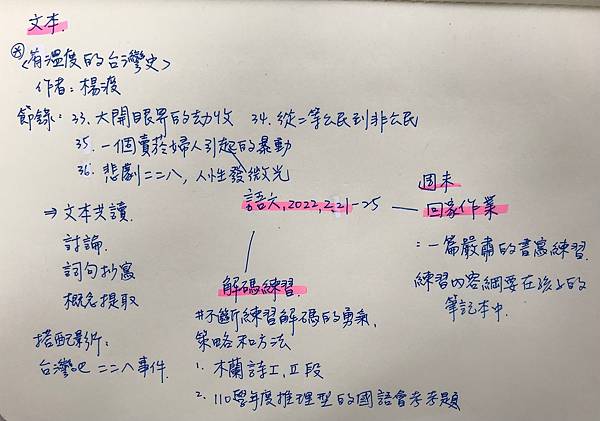 文本
<有溫度的台灣史>
作者:楊渡
節錄:33.大開眼界的劫收 34.從二等公民到非公民
35.一個賣菸婦人引起的暴動
36.悲劇二二八,人性發微光
⇒文本共讀
討論.
詞句抄寫
概念提取
搭配影片:
台灣吧 二二八事件.
語六,2022,2.21-25
週末
回家作業
:一篇嚴肅的書寫練習.
練習內容綱要在孩子的
筆記本中.
解碼練習.
#不斷練習解碼的勇氣,
策略和方法
1. 木蘭詩I.II段
2. 110學年度推理型的國語會考考題